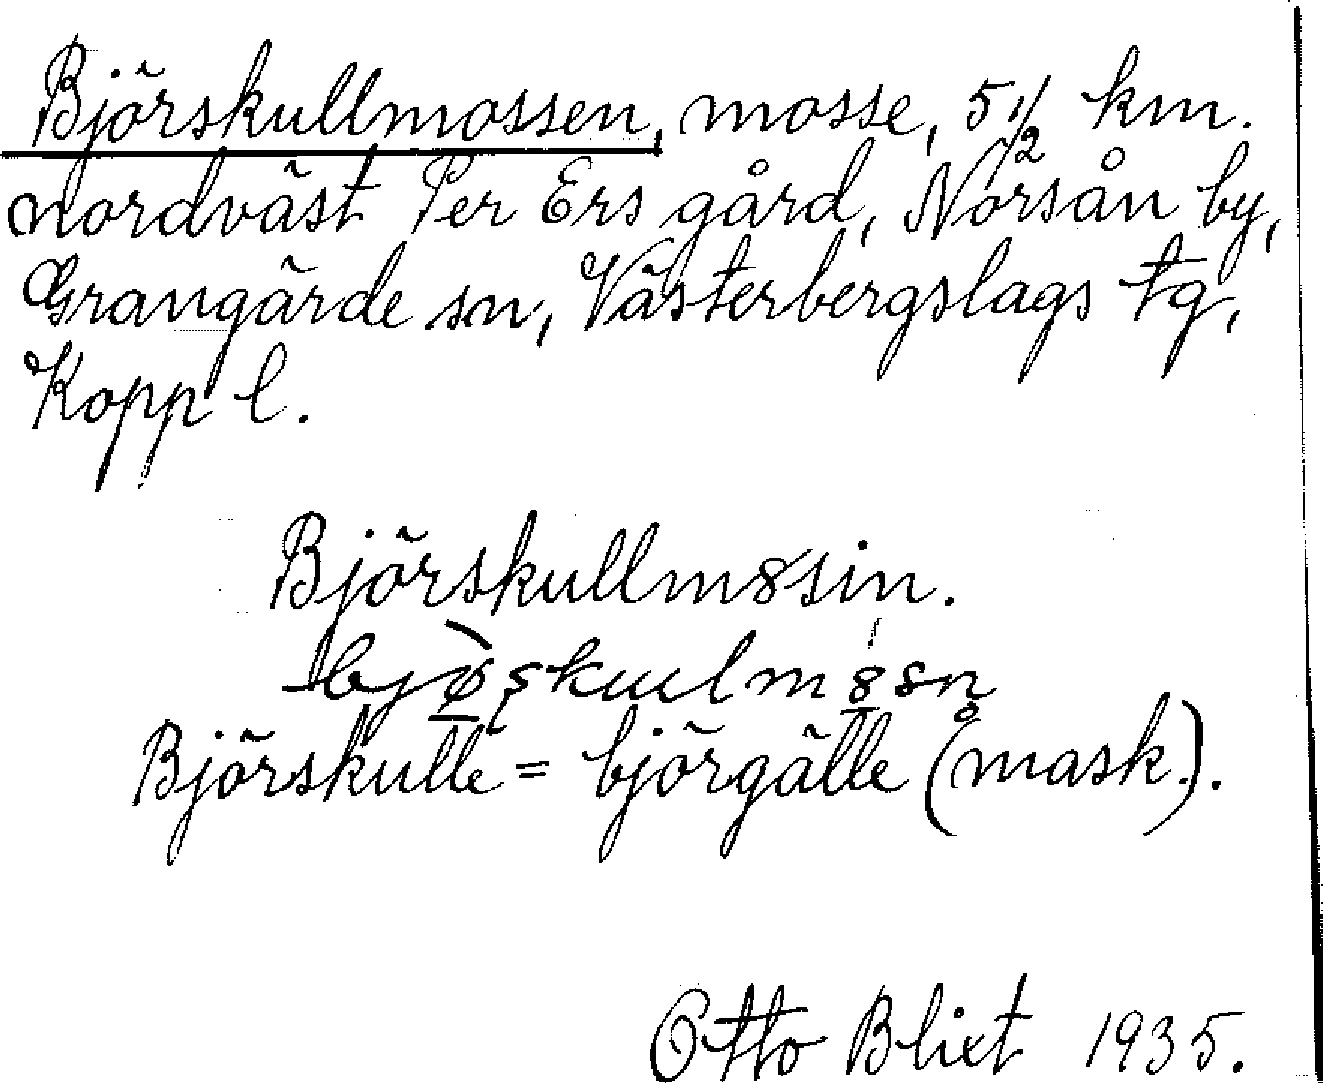 Björskullmossen, mosse, 5 1/2 km.
nordväst Per Ers gård, Norsån by,
Grangärde sn, Västerbergslags tg,
Kopp l.
Björskullm8sin.
bjø̀ʂkuulm8sn̥
Björskulle = björgälle (mask.).
Otto Blixt 1935.